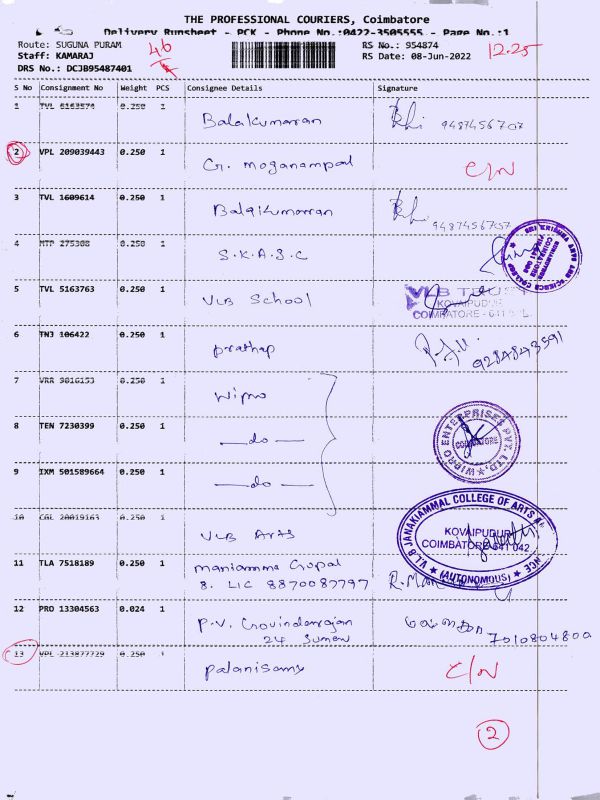 THE PROFESSIONAL COURIERS, Coimbatore
Delivery Runsheet - PCK - Phone No.:0422-3505555 - Page No.:1
Route: SUGUNA PURAM
Staff: KAMARAJ
DRS No.: DCJB95487401
46
RS No.: 954874
RS Date: 08-Jun-2022
12.25
S No Consignment No Weight PCS Consignee Details Signature
1 TVL 5163574 0.250 1 Balakumaran 9487456707
2 VPL 209039443 0.250 1 G. moganampal C/N
3 TVL 1609614 0.250 1 Balakumaran 9487456707
4 MTP 275308 0.250 1 S.K.A.S.C
5 TVL 5163763 0.250 1 VLB School
VLB TRUST
KOVAIPUDUR
COIMBATORE - 641
6 TNJ 106422 0.250 1 prathap 9284843591
7 VRR 9816153 0.250 1 Wipro
8 TEN 7230399 0.250 1 —do—
WIPRO ENTERPRISES PVT. LTD,
COIMBATORE
9 IXM 501589664 0.250 1 —do—
10 CGL 20019163 0.250 1 VLB Arts
V.L.B JANAKIAMMAL COLLEGE OF ARTS
KOVAIPUDUR
COIMBATORE 641 042
(AUTONOMOUS)
11 TLA 7518189 0.250 1 maniamma Gopal
8. LIC 8870087797
12 PRO 13304563 0.024 1 P.V. Govindarajan
24 7010804800
13 VPL 213877729 0.250 1 palanisamy C/N
2